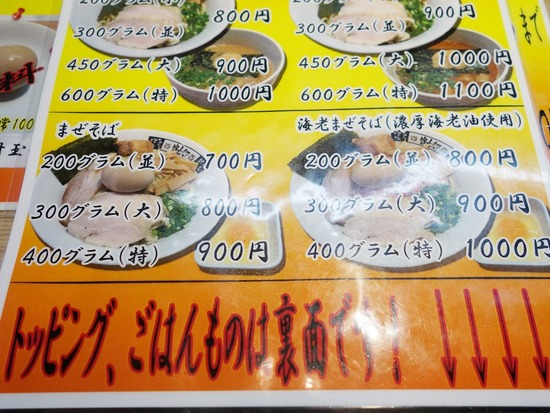 800円
300グラム(並)
450グラム(大) 900円
600グラム(特) 1000円
900円
300グラム(並)
450グラム(大) 1000円
600グラム(特) 1100円
まぜそば
200グラム(並) 700円
300グラム(大) 800円
400グラム(特) 900円
海老まぜそば(濃厚海老油使用)
200グラム(並) 800円
300グラム(大) 900円
400グラム(特) 1000円
トッピング、ごはんものは裏面です!↓↓↓↓
まで